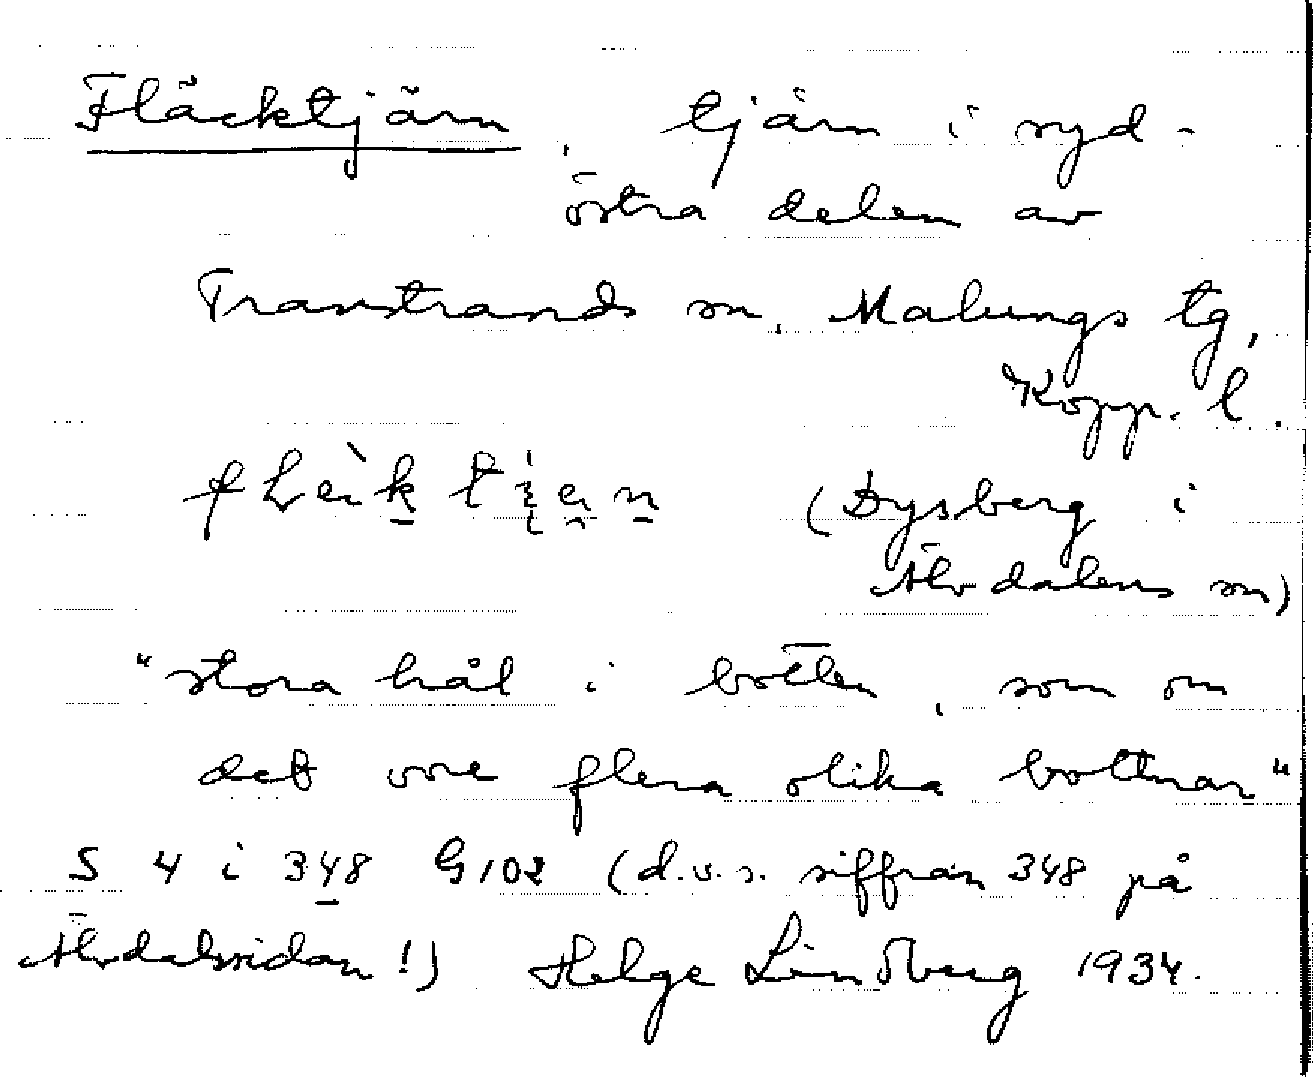 Fläcktjärn, tjärn i syd-
östra delen av
Transtrands sn, Malungs tg,
Kopp. l.
(Dysberg i
Älvdalens sn)
"stora hål i botten, som om
det vore flera olika bottnar"
S 4 i 348 G102 (d.v.s. siffran 348 på
Älvdalssidan!) Helge Lindberg 1934.